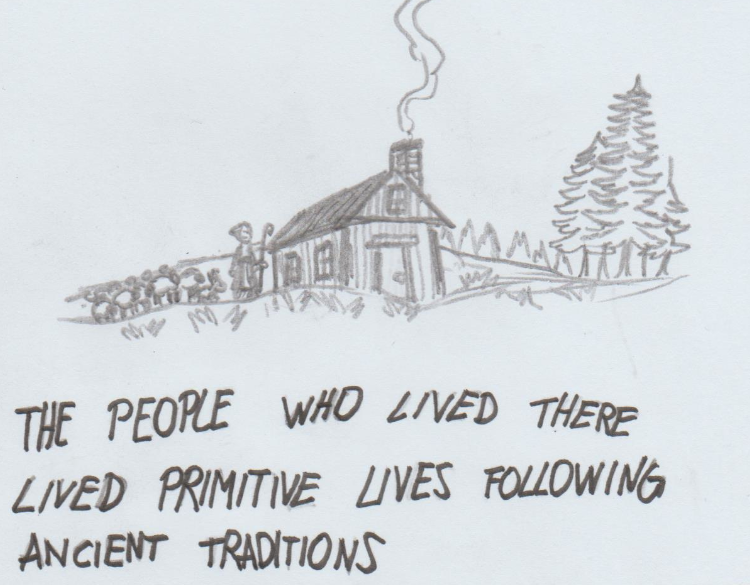 THE PEOPLE WHO LIVED THERE
LIVED PRIMITIVE LIVES FOLLOWING
ANCIENT TRADITIONS